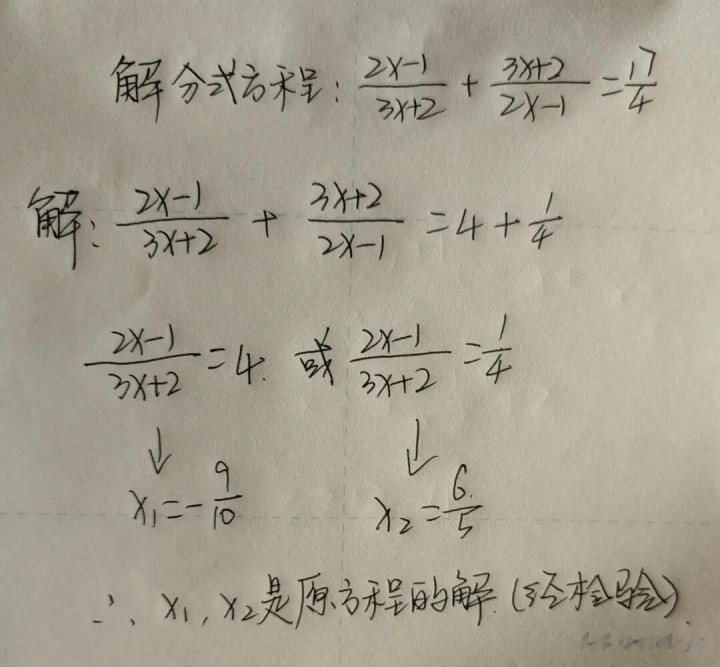 解分式方程: (2x-1)/(3x+2) + (3x+2)/(2x-1) = 17/4
解: (2x-1)/(3x+2) + (3x+2)/(2x-1) = 4 + 1/4
(2x-1)/(3x+2) = 4. 或 (2x-1)/(3x+2) = 1/4
↓ ↓
x₁ = -9/10 x₂ = 6/5
∴ x₁, x₂是原方程的解.(经检验).